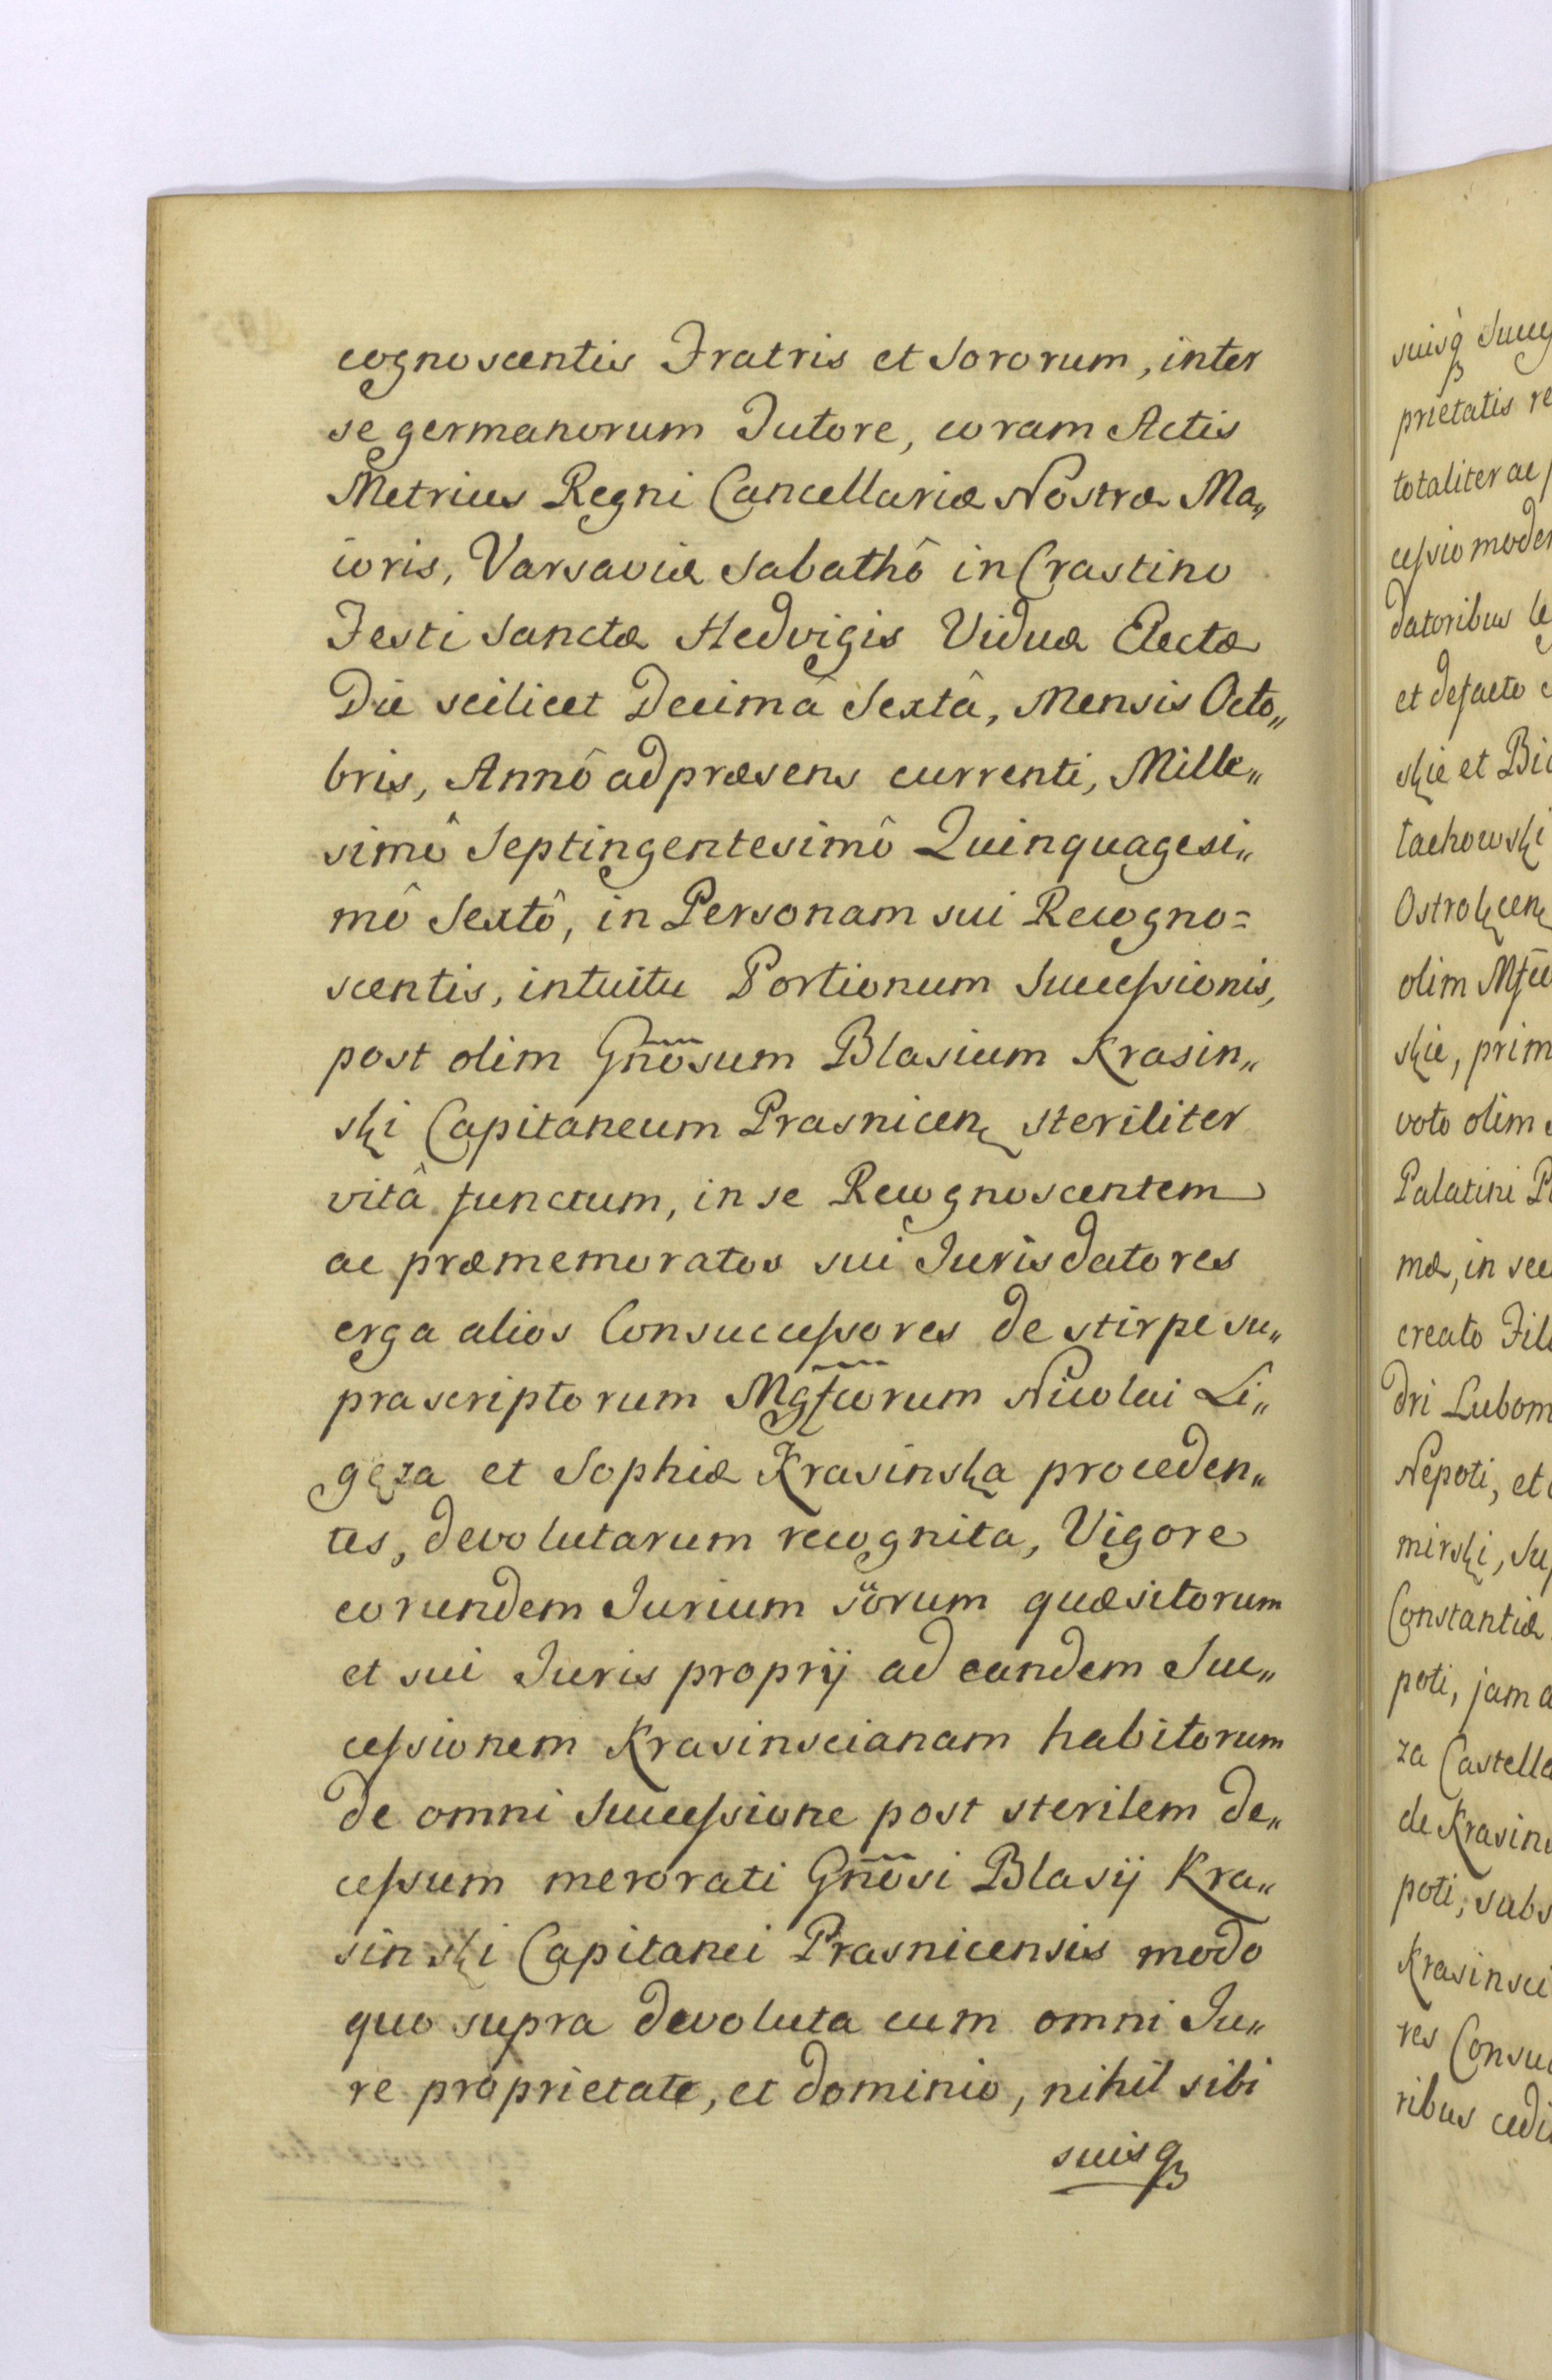 cognoscentis Fratris et Sororum, inter
se germanorum Tutore, coram Actis
Metrices Regni Cancellariæ Nostræ Ma„
ioris, Varsaviæ Sabathô in Crastino
Festi Sanctæ Hedvigis Viduæ Electæ
Die scilicet Decimâ Sextâ, Mensis Octo„
bris, Annô ad præsens currenti, Mille„
simô Septingentesimô Quinquagesi„
mô Sextô, in Personam sui Recogno=
scentis, intuitu Portionum Successionis,
post olim Gnõsum Blasium Krasin„
ski Capitaneum Prasnicen steriliter
vitâ functum, in se Recognoscentem
ac præmemoratos sui Juris datores
erga alios Consuccessores de stirpe su„
prascriptorum Mgfcorum Nicolai Li„
gęza et Sophiæ Krasinska proceden„
tes, devolutarum recognita, Vigore
eorundem Jurium sõrum quæsitorum
et sui Juris proprij ad eandem Suc„
cessionem Krasinscianam habitorum
de omni Successione post sterilem de„
cessum merorati Gnõsi Blasij Kra„
sinski Capitanei Prasnicensis modo
quo supra devoluta cum omni Ju„
re proprietate, et dominio, nihil sibi
suisq
suisq
prietatis re
totaliter ac
cessio moder
datoribus
et defacto
skie et
tachowski
Ostrołęcen
olim
skie, prim
voto olim
Palatini
mæ, in
creato
dri Lubom
Nepoti, et
mirski,
Constantiæ
poti, jam
za Castella
de Krasin
poti, subs
Krasinsci
res Consuc
ribus cedi